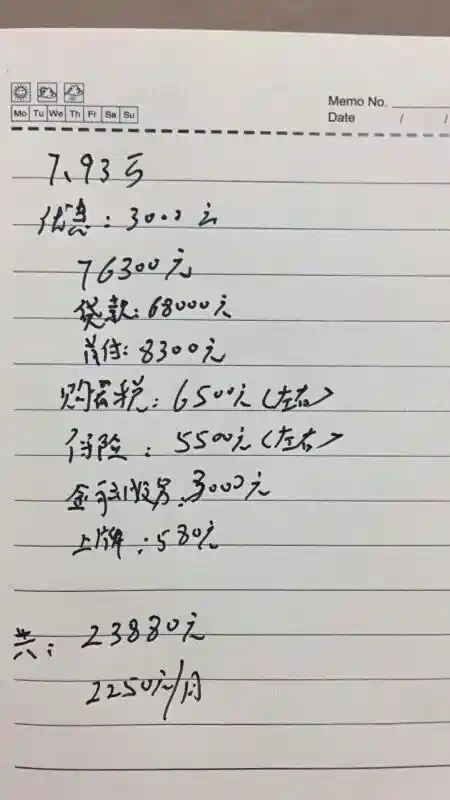 Memo No.
Mo Tu We Th Fr Sa Su
Date / /
7.93万
优惠：3000元
76300元
贷款：68000元
首付：8300元
购置税：6500元（左右）
保险：5500元（左右）
金融服务：3000元
上牌：580元
共：23880元
2250元/月